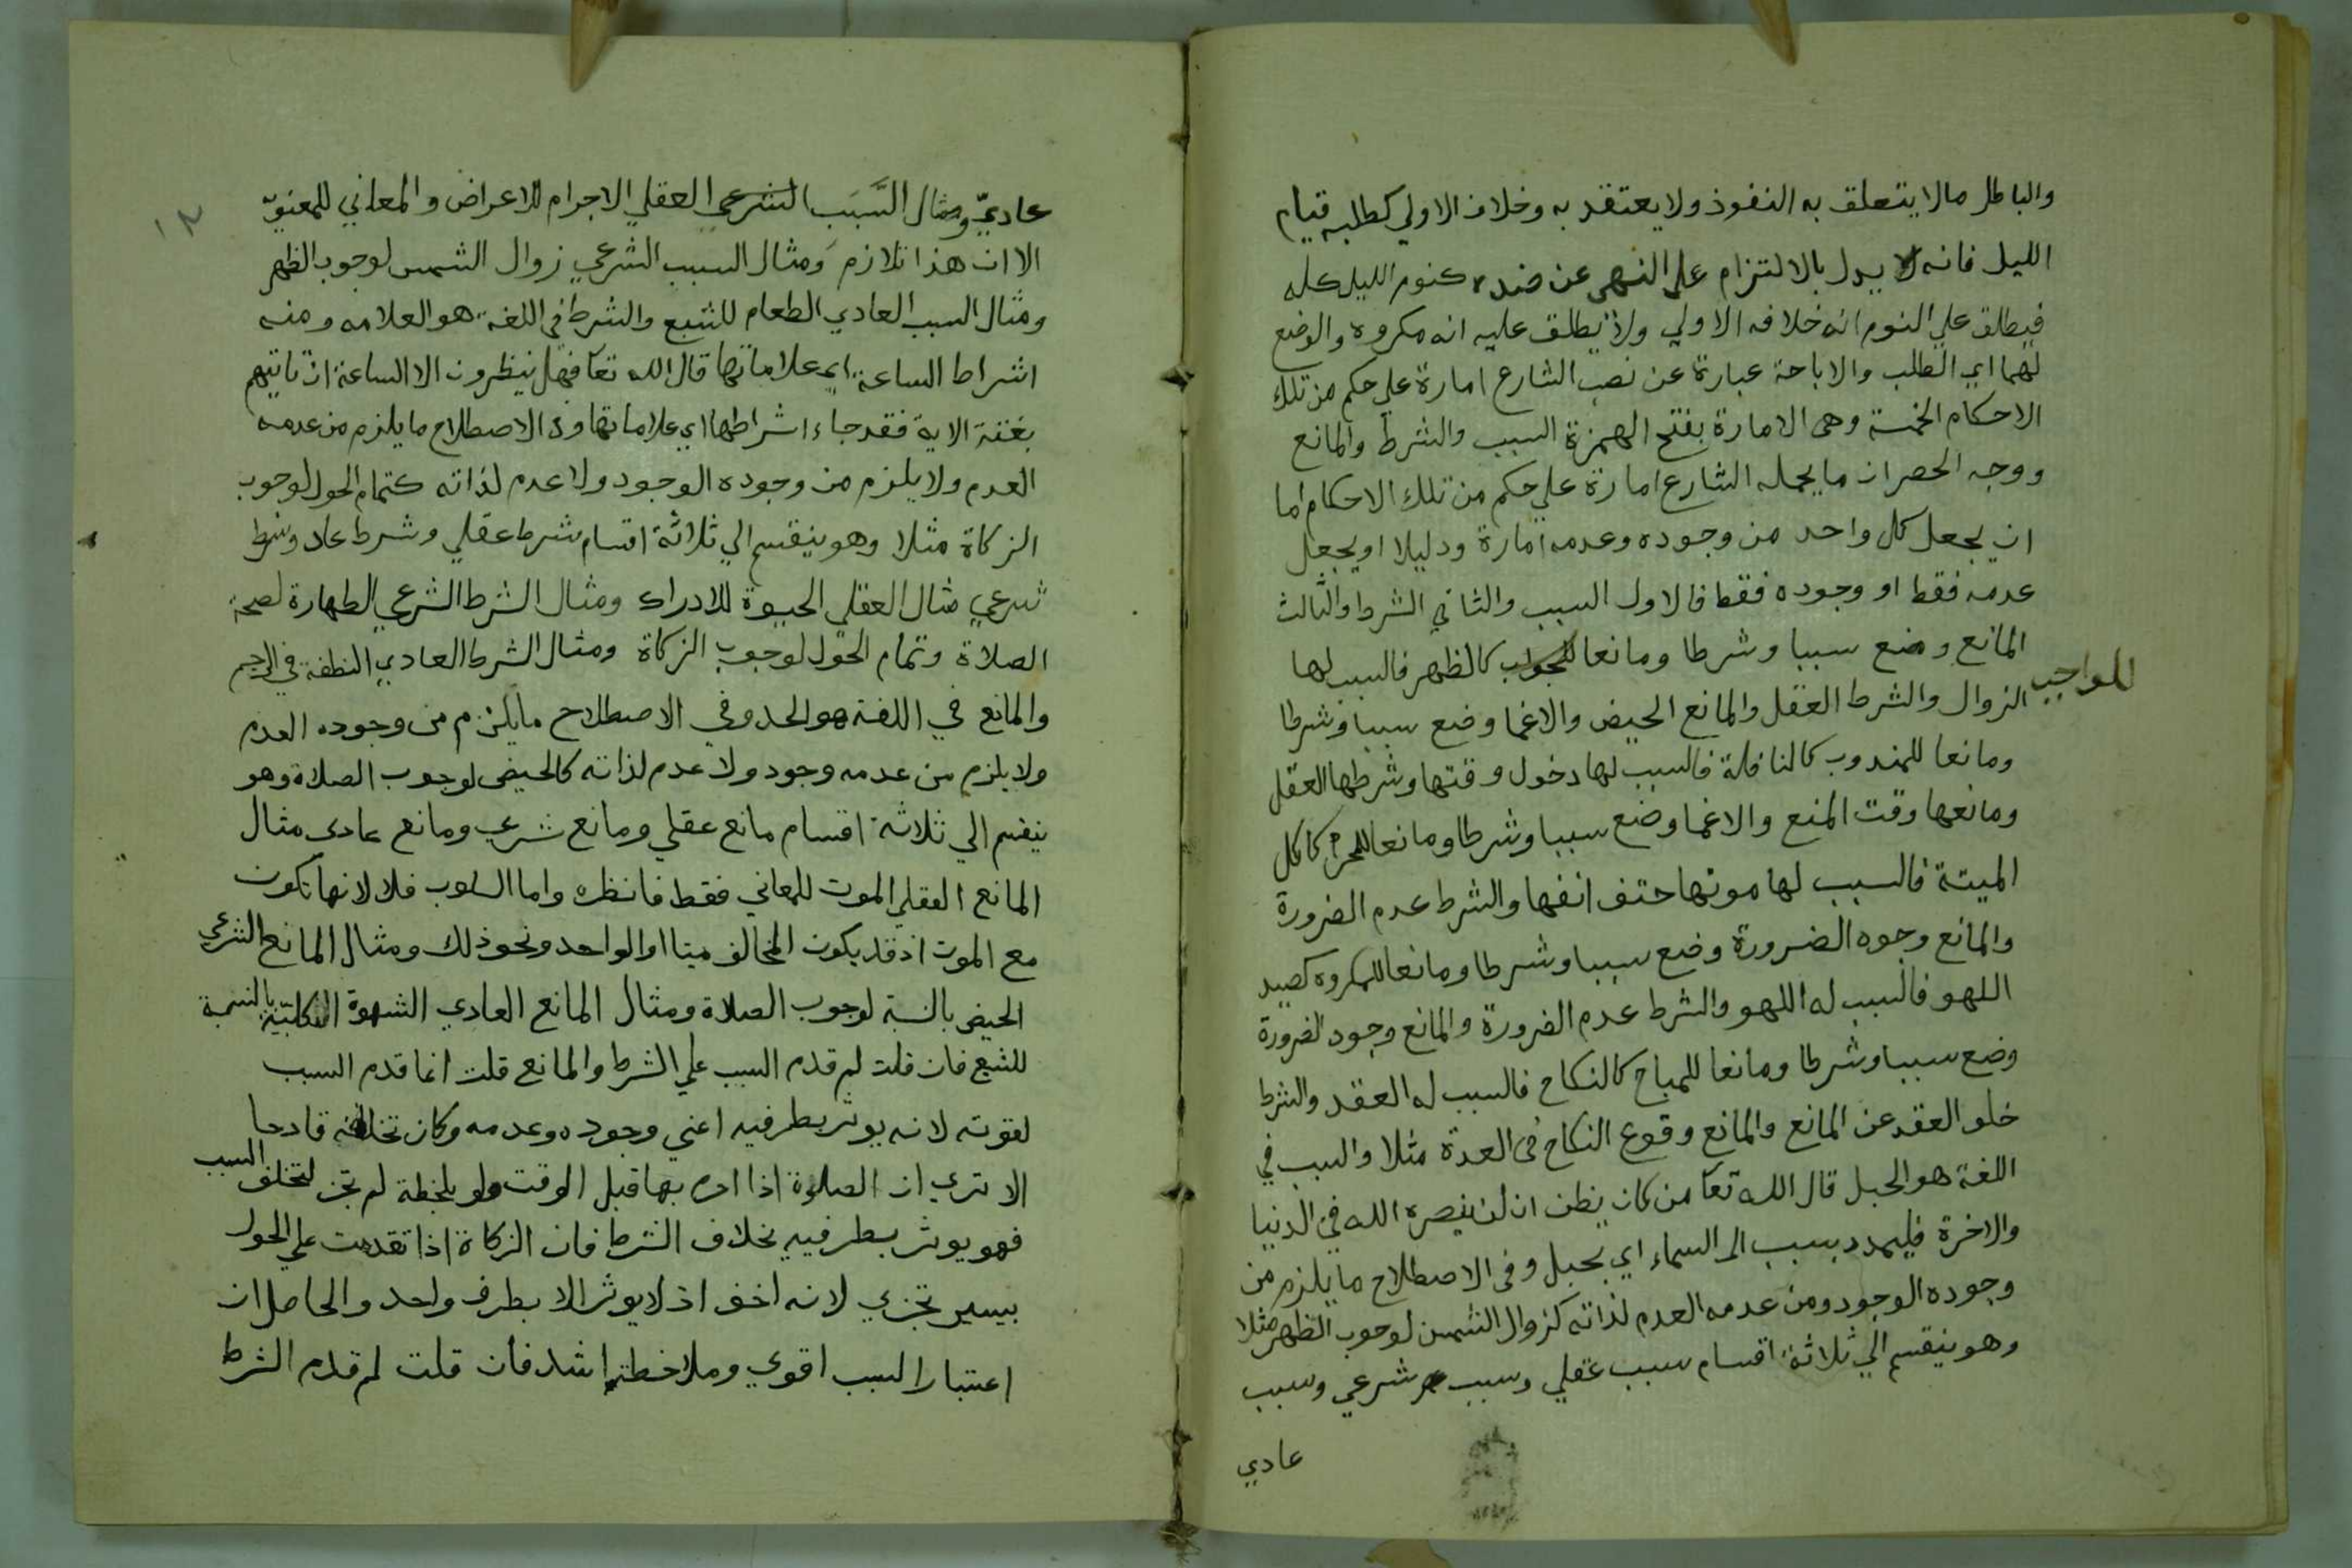 والباطل مالا يتعلق به النفوذ ولا يعتقد به وخلاف الاولي كطلبه قيام
الليل فانه لا يدل بالالتزام علي النهي عن ضده كنوم الليل كله
فيطلق علي النوم انه خلافه الاولي ولا يطلق عليه انه مكروه والوضع
لهما اي الطلب والاباحة عبارة عن نصب الشارع امارة علي حكم من تلك
الاحكام الخمسة وهي الامارة بفتح الهمزة السبب والشرط والمانع
ووجه الحصران ما يجعله الشارع امارة علي حكم من تلك الاحكام اما
ان يجعل كل واحد من وجوده وعدمه امارة ودليلا او يجعل
عدمه فقط او وجوده فقط فالاول السبب والثاني الشرط والثالث
المانع وضع سببا وشرطا ومانعا للواجب كالظهر فالسبب لها
الزوال والشرط العقل والمانع الحيض والاغما وضع سببا وشرطا
ومانعا للمندوب كالنافلة فالسبب لها دخول وقتها وشرطها العقل
ومانعها وقت المنع والاغما وضع سببا وشرطا ومانعا للمحرم كاكل
الميتة فالسبب لها موتها حتف انفها والشرط عدم الضرورة
والمانع وجوه الضرورة وضع سببا وشرطا ومانعا للمكروه كصيد
اللهو فالسبب له اللهو والشرط عدم الضرورة والمانع وجود الضرورة
وضع سببا وشرطا ومانعا للمباح كالنكاح فالسبب له العقد والشرط
خلو العقد عن المانع والمانع وقوع النكاح في العدة مثلا والسبب في
اللغة هو الحبل قال الله تعا من كان يظن ان لن ينصره الله في الدنيا
والاخرة فليمدد بسبب الي السماء اي بحبل وفي الاصطلاح ما يلزم من
وجوده الوجود ومن عدمه العدم لذاته كزوال الشمس لوجوب الظهر مثلا
وهو ينقسم الي ثلاثة اقسام سبب عقلي وسبب شرعي وسبب
عادي
١٢
عاديّ ومثال السَّبَب الشرعي العقلي الاجرام للاعراض والمعاني للمعنويّ
الا ان هذا تلازم ومثال السبب الشرعي زوال الشمس لوجوب الظهر
ومثال السبب العادي الطعام للشبع والشرط في اللغة هو العلامه ومنه
اشراط الساعة اي علاماتها قال الله تعا فهل ينظرون الا الساعة ان تاتيهم
بغتة الاية فقد جاء اشراطها اي علاماتها وفي الاصطلاح ما يلزم من عدمه
العدم ولا يلزم من وجوده الوجود ولا عدم لذاته كتمام الحول لوجوب
الزكاة مثلا وهو ينقسم الي ثلاثة اقسام شرط عقلي وشرط عاد وشرط
شرعي مثال العقلي الحيوة للادراك ومثال الشرط الشرعي الطهارة لصحة
الصلاة وتمام الحول لوجوب الزكاة ومثال الشرط العادي النطفة في الرحم
والمانع في اللغة هو الحد وفي الاصطلاح ما يلزم من وجوده العدم
ولا يلزم من عدمه وجود ولا عدم لذاته كالحيض لوجوب الصلاة وهو
ينقسم الي ثلاثة اقسام مانع عقلي ومانع شرعي ومانع عادي مثال
المانع العقلي الموت للمعاني فقط فانظره واما السلوب فلا لانها تكون
مع الموت اذ قد يكون المخالف ميتا او الواحد ونحو ذلك ومثال المانع الشرعي
الحيض بالنسبة لوجوب الصلاة ومثال المانع العادي الشهوة الكلبية بالنسبة
للشبع فان قلت لم قدم السبب علي الشرط والمانع قلت انما قدم السبب
لقوته لانه يوثر بطرفيه اعني وجوده وعدمه وكان تخلفه قادحا
الا تري ان الصلاة اذا اده بها قبل الوقت ولو بلحظة لم تجز لتخلف السبب
فهو يوثر بطرفيه بخلاف الشرط فان الزكاة اذا تقدمت علي الحول
بيسير تجزي لانه اخف اذ لا يوثر الا بطرف واحد والحاصل ان
اعتبار السبب اقوي وملاحظته اشد فان قلت لم قدم الشرط